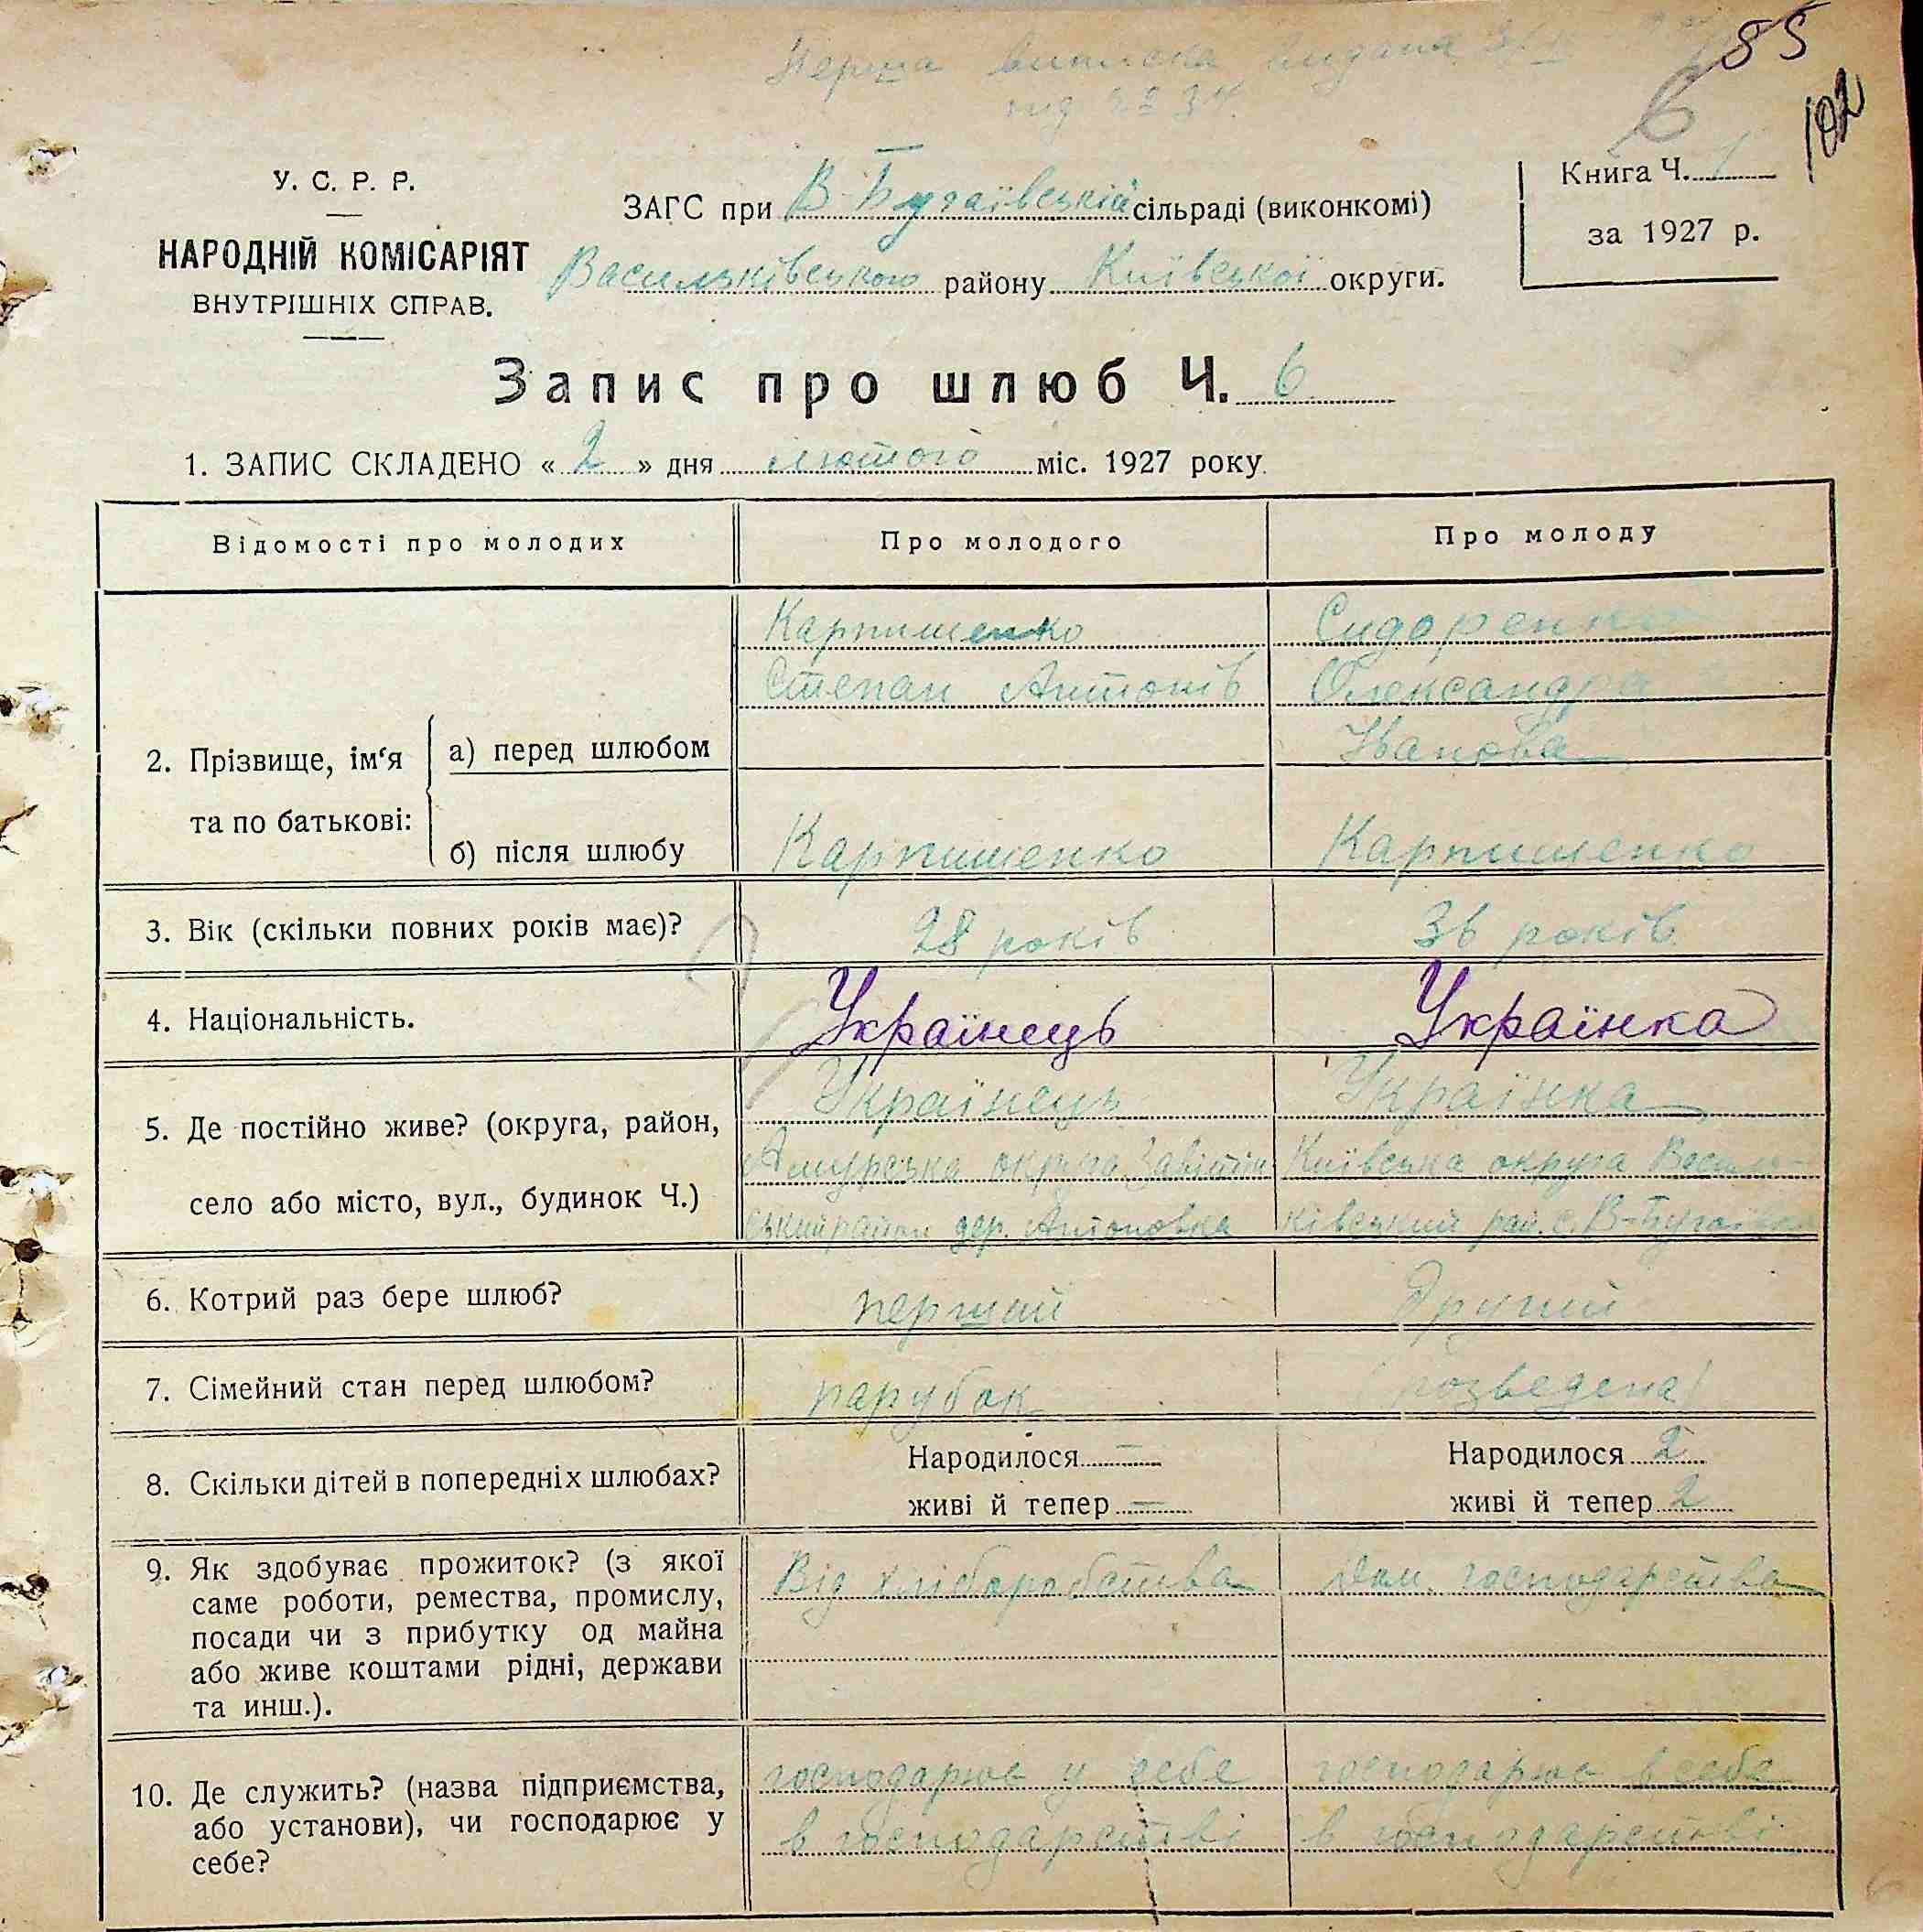 Перша виписка видана
під № 34.
85
6
102
У. С. Р. Р.
НАРОДНІЙ КОМІСАРІЯТ
ВНУТРІШНІХ СПРАВ.
ЗАГС при В-Бугаївській сільраді (виконкомі)
Васильківського району Київської округи.
Книга Ч. 1
за 1927 р.
Запис про шлюб Ч. 6
1. ЗАПИС СКЛАДЕНО « 2 » дня лютого міс. 1927 року.
Відомості про молодих
Про молодого
Про молоду
2. Прізвище, ім‘я та по батькові:
а) перед шлюбом
Карпишенко
Степан Антонів
Сидоренко
Олександра
Іванова
б) після шлюбу
Карпишенко
Карпишенко
3. Вік (скільки повних років має)?
28 років
36 років
4. Національність.
Українець
Українка
5. Де постійно живе? (округа, район,
село або місто, вул., будинок Ч.)
Українець
Амурська округа Завітін
ський район дер. Антоновка
Українка
Київська округа Василь-
ківський рай. с. В-Бугаївка
6. Котрий раз бере шлюб?
перший
Другий
7. Сімейний стан перед шлюбом?
парубок
розведена
8. Скільки дітей в попередніх шлюбах?
Народилося —
живі й тепер —
Народилося 2
живі й тепер 2
9. Як здобуває прожиток? (з якої
саме роботи, ремества, промислу,
посади чи з прибутку од майна
або живе коштами рідні, держави
та инш.).
Від хліборобства
Дом. господарства
10. Де служить? (назва підприємства,
або установи), чи господарює у
себе?
господарює у себе
в господарстві
господарює в себе
в господарстві